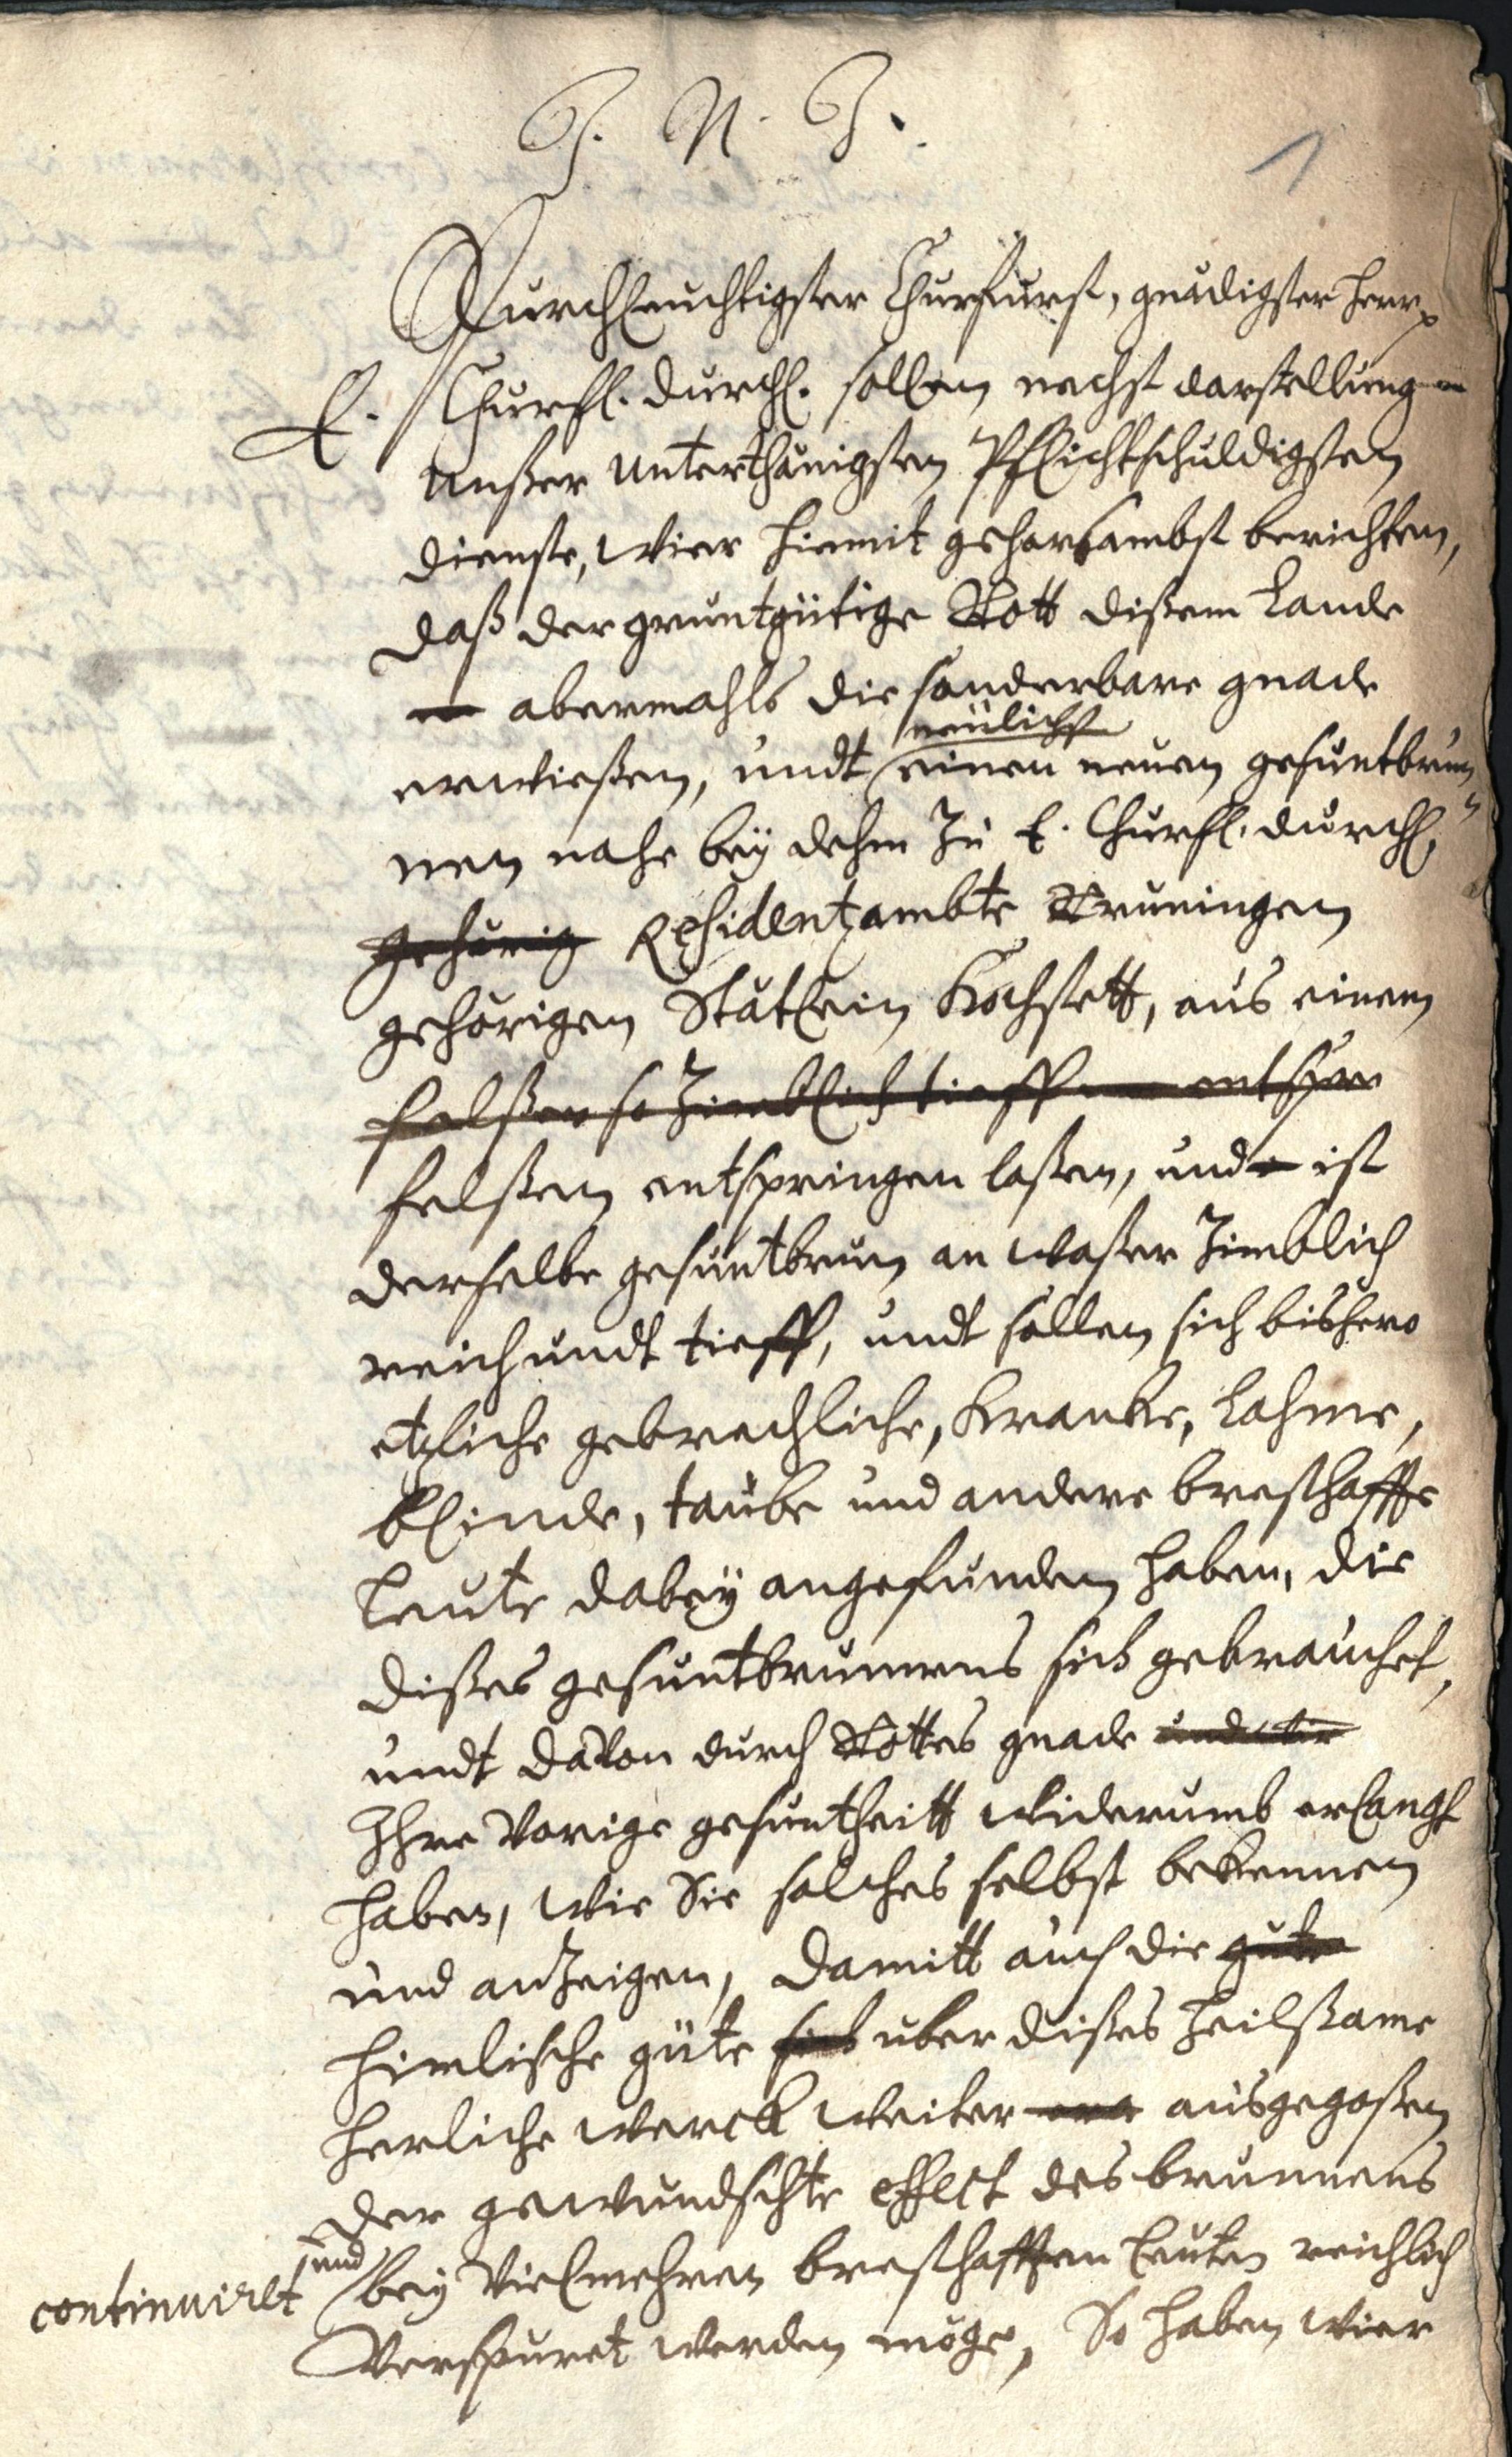 J. N. J.
1
Durchleuchtigster Churfurst, gnädigster Herr
E. Churfl. Durchl. sollen nechst darstellung
unßer unterthänigsten Pflichtschuldigsten
dienste, wier hiemit gehorsambst berichten,
daß der gruntgütige Gott dißem Lande
abermahls die sonderbare gnade
neulichst
erwießen, undt einen neuen gesuntbrun
nen nahe bey dehm zu E. Churfl. durchl.
gehörig Residentzambte Gruningen
gehörigen Stätlein Kochstett, aus einem
felßen so zimblich tieff entspr
felßen entspringen laßen, und ist
derselbe gesuntbrun an waßer zimblich
reich undt tieff, undt sollen sich bishero
etzliche gebrechliche, Krancke, Lahme,
blinde, taube und andere bresthaffte
Leute dabey angefunden haben, die
dißes gesuntbrunnens sich gebrauchet,
undt davon durch Gottes gnade und die
Ihre vorige gesuntheitt widerumb erlangt
haben, wie Sie solches selbst bekennen
und anzeigen, Damitt auch die gute
himlische güte sich uber dißes heilsame
herliche werck weiter ausgegoßen
der gewundschte effect des brunnens
continuiret und bey vielmehren bresthafften Leuten reichlich
verspuret werden möge, So haben wier